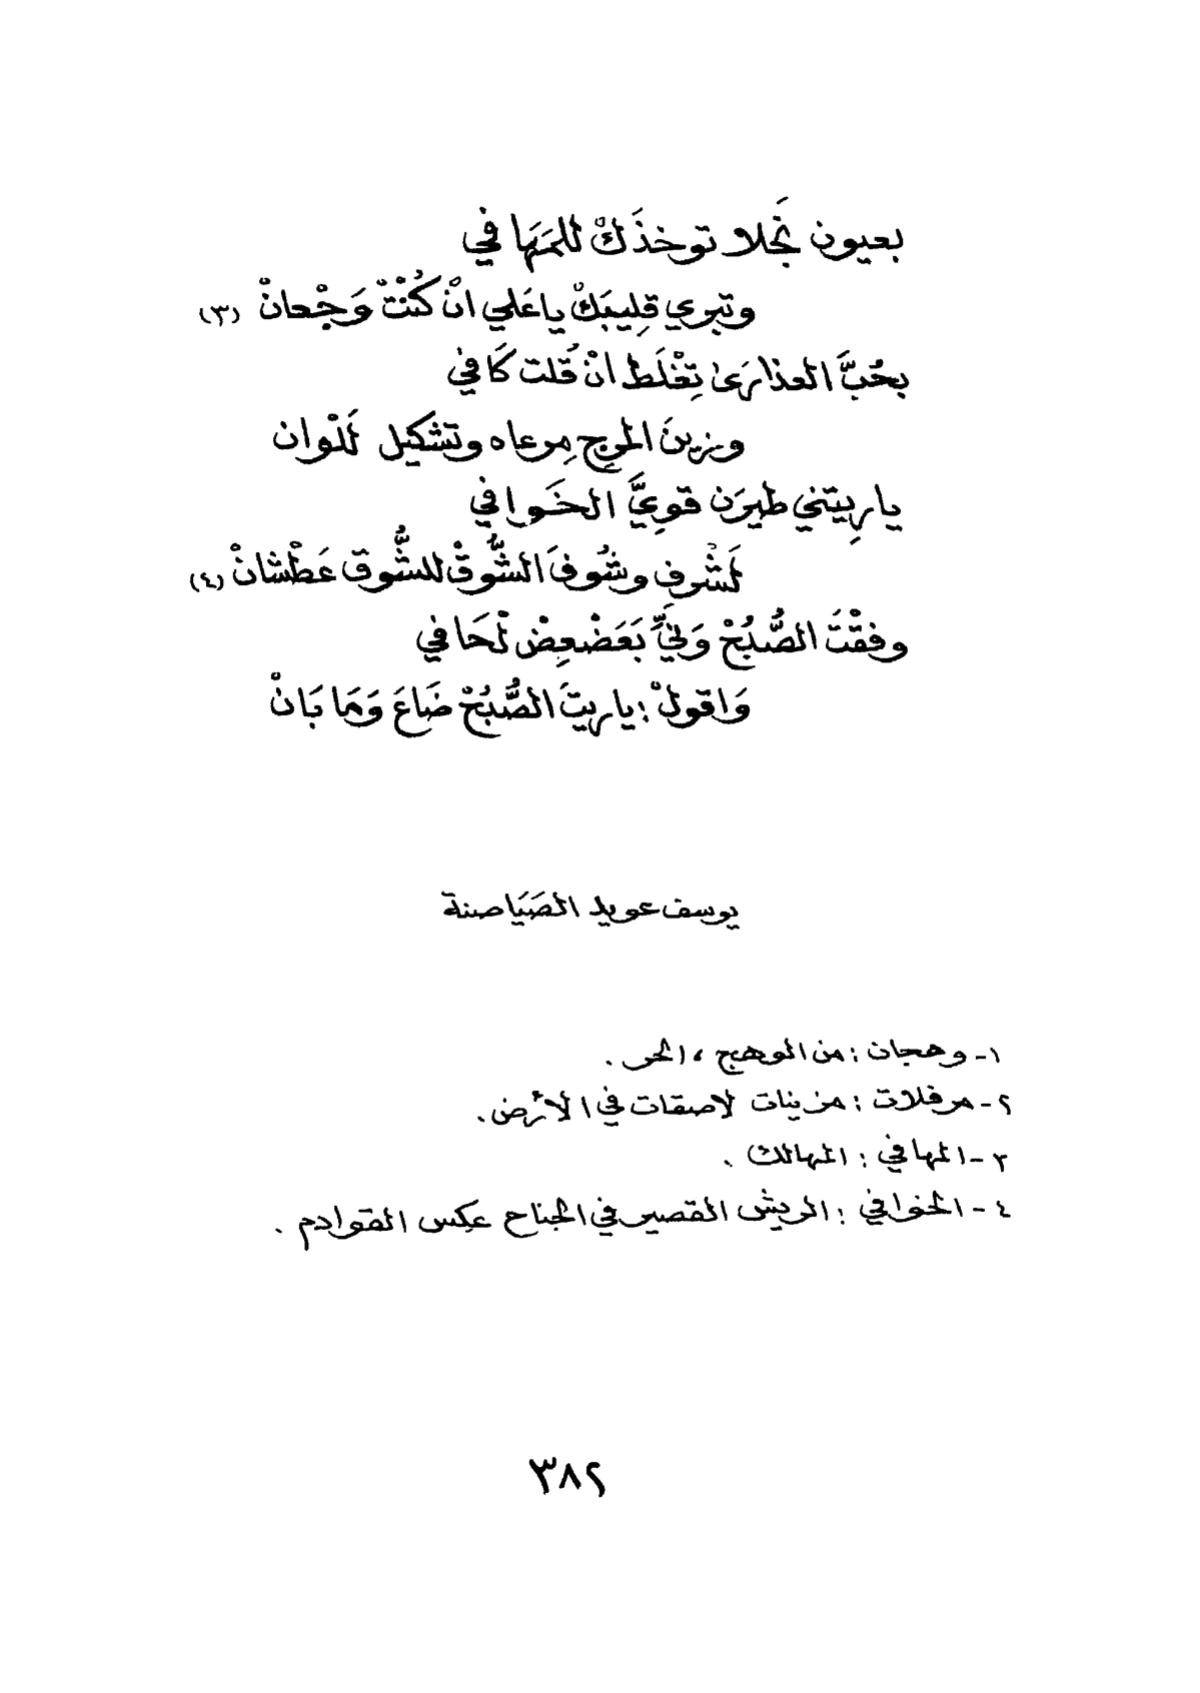 بعيون نَجلا توخذَكْ للمَهَا في
وتبري قِليبَكْ ياعَلي انْ كُنْتْ وَجْعانْ (٣)
بحُبَّ العذارَى تِغْلَط انْ قُلت كَافي
وزينَ المرج مِرعاه وتشكيل لَلْوان
ياريِتني طيرَن قوِيَّ الخَوافي
لَشْرفِ وشُوفَ الشُّوقْ للشُّوق عَطْشانْ (٤)
وفقْتَ الصُّبُحْ وَلِيِّ بَعَضْعِضْ لْحَافي
وَاقولْ : ياريتَ الصُّبُحْ ضَاعَ وَمَا بَانْ
يوسف عويد الصَيَاصنة
١- وهجان : من الوهج ، الحر .
٢- مرفلات : مزينات لاصقات في الأرض .
٣- المهافي : المهالك .
٤- الخوافي : الريش القصير في الجناح عكس القوادم .
٣٨٢